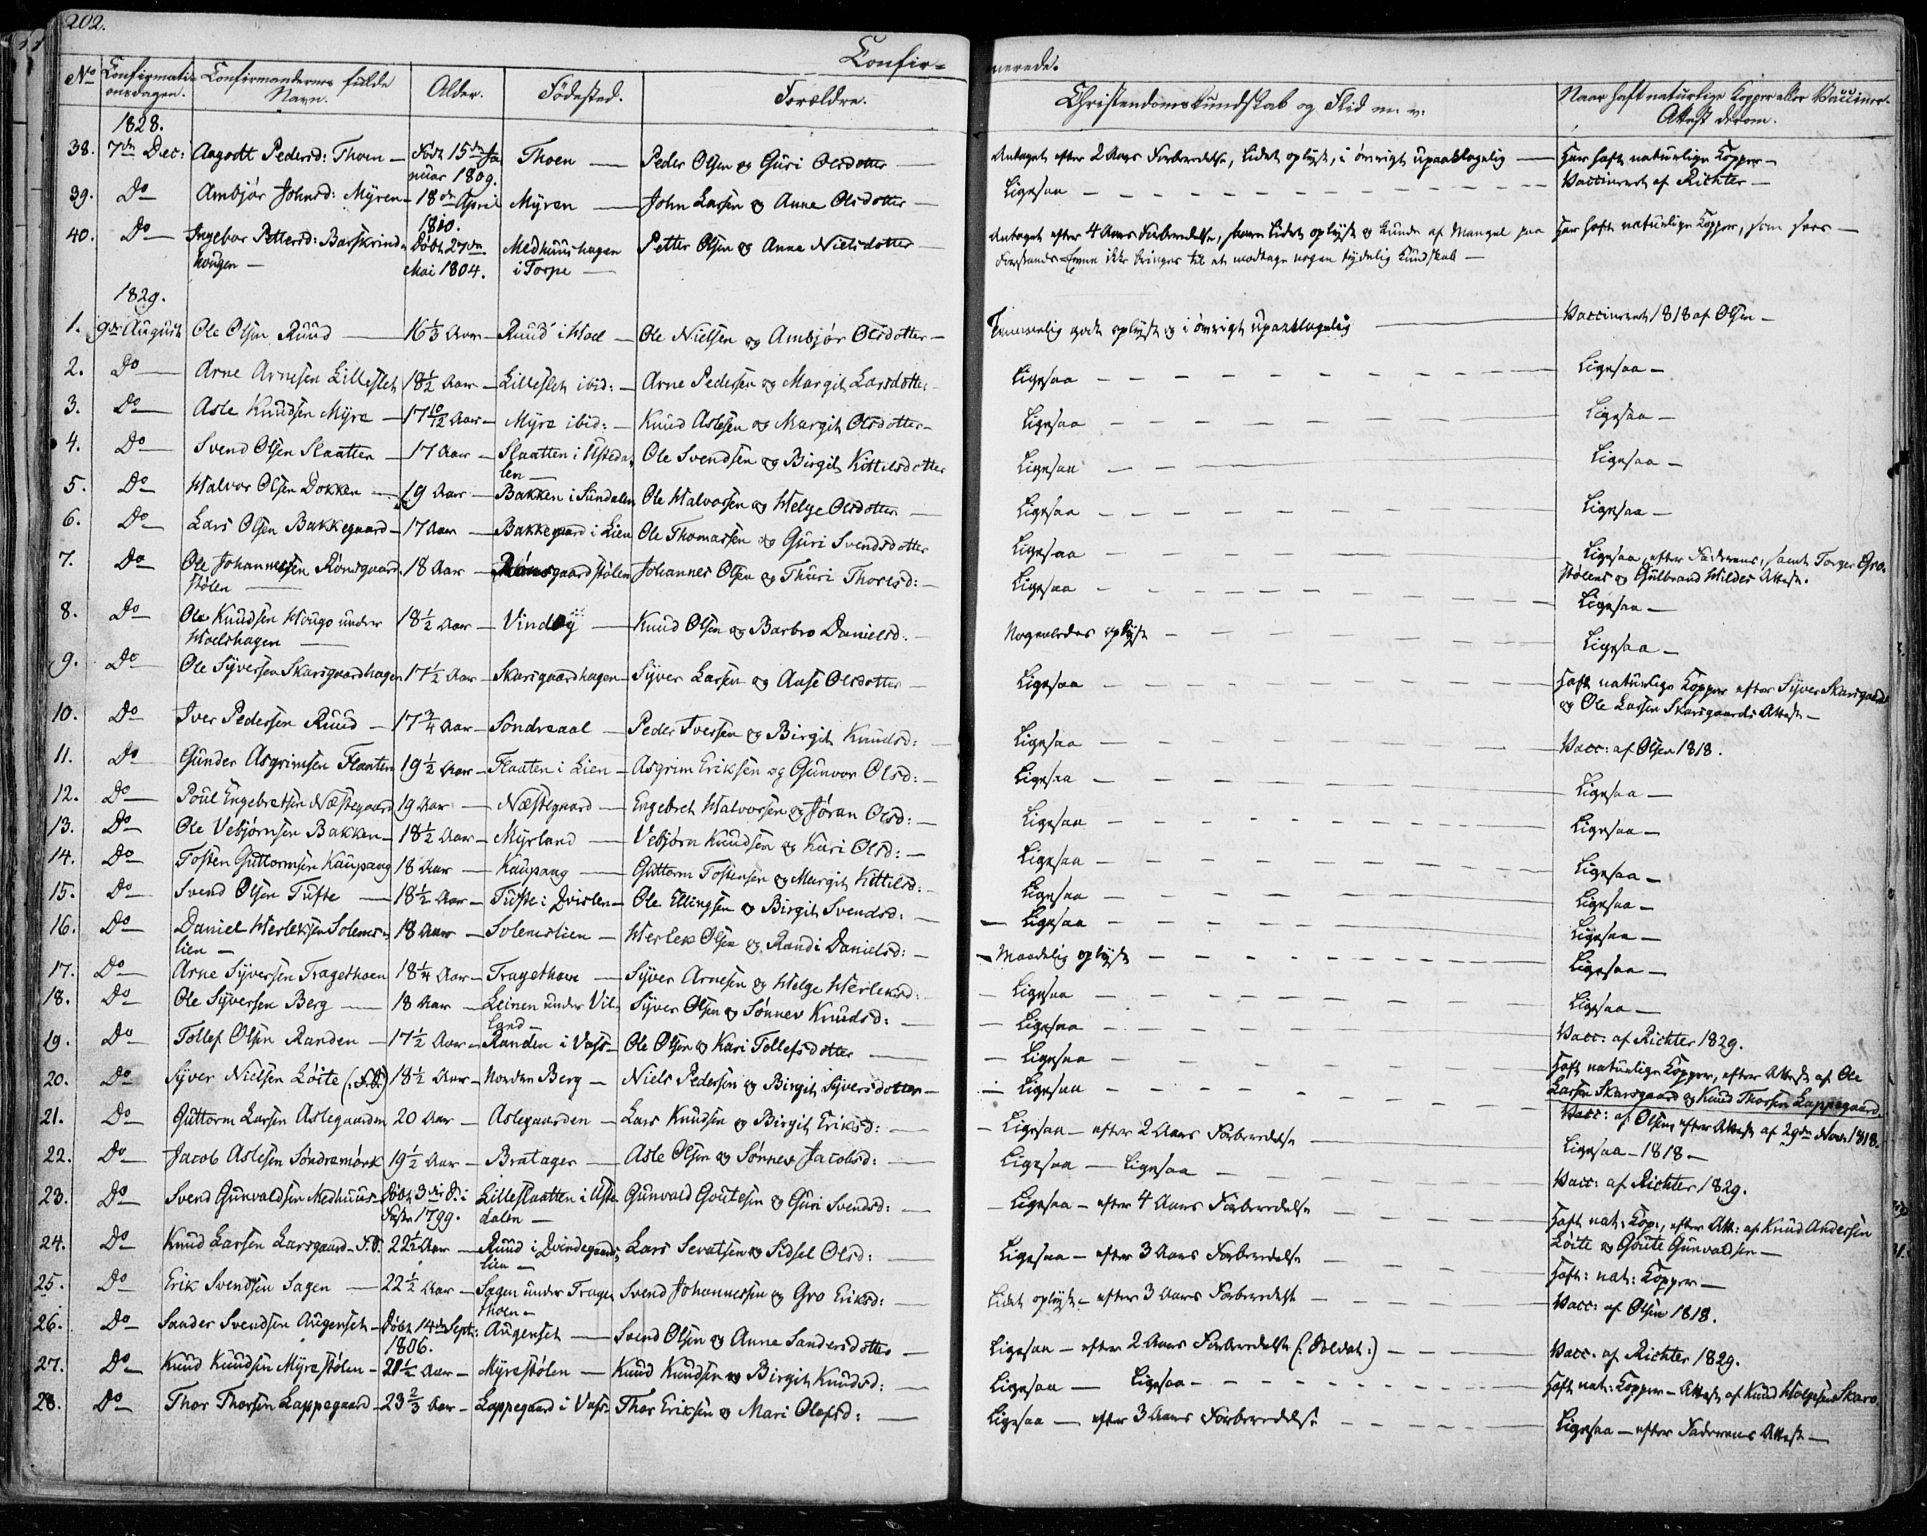 202.
Confir=
merede.
No Confirmati= Confirmandernes fulde Alder. Fødested. Forældre. Christendomskundskab og Flid m. v: Naar haft naturlige Kopper eller Vaccine=
onsdagen. Navn. Attest derom.
1828.
38. 7de Dec: Aagodt Pedersd: Thoen — Født 15de Ja Thoen — Peder Olsen og Guri Olsdotter — Antaget efter 2 Aars Forberedelse, Lidet oplyst, i øvrigt upaaklagelig — Har haft naturlige Kopper —
nuar 1809.
39. Do Ambjør Johnsd: Myren — 18de April Myren — John Larsen og Anne Olsdotter — Ligesaa — Vaccineret af Richter —
1810.
40. Do Ingebor Pettersd: Barskrind= Født 27de Medhuushagen Petter Olsen og Anne Nielsdotter — Antaget efter 4 Aars Forberedelse, Lidet oplyst & kunde af Mangel paa Har haft naturlige Kopper, som sees —
hougen — Mai 1804. i Torpe — Forstands-Evne ikke bringes til at modtage nogen tydelig Kundskab —
1829.
1. 9de August Ole Olsen Ruud — 16 1/3 Aar — Ruud i Hoel — Ole Nielsen og Ambjør Olsdotter — Temmelig godt oplyst og i øvrigt upaaklagelig — Vaccineret 1818 af Olsen —
2. Do Arne Arnesen Lilleslet 18 1/2 Aar — Lilleslet ibid: — Arne Pedersen og Margit Larsdotter — Ligesaa — Ligesaa —
3. Do Asle Knudsen Myre — 17 10/12 Aar — Myre ibid: — Knud Aslesen og Margit Olsdotter — Ligesaa — Ligesaa —
4. Do Svend Olsen Slaatten — 17 Aar — Slaatten i Usteda= Ole Svendsen og Birgit Kittilsdotter Ligesaa — Ligesaa —
len —
5. Do Halvor Olsen Dokken — 19 Aar — Bakken i Sundalen Ole Halvorsen og Helge Olsdotter — Ligesaa — Ligesaa —
6. Do Lars Olsen Bakkegaard — 17 Aar — Bakkegaard i Lien Ole Thomassen og Guri Svendsdotter Ligesaa — Ligesaa, efter Faderens, samt Torger Gro=
7. Do Ole Johannessen Rønsgaard 18 Aar — Rønsgaardstølen Johannes Olsen og Thuri Thoresd: — Ligesaa — stølens og Gulbrand Hildes Attest.
stølen — Ligesaa —
8. Do Ole Knudsen Hougo under 18 1/2 Aar — Vindøy — Knud Olsen og Barbro Danielsd: — Nogenledes oplyst — Ligesaa —
Hoelshagen —
9. Do Ole Syversen Skarsgaardhagen 17 1/2 Aar — Skarsgaardhagen — Syver Larsen og Aase Olsdotter — Ligesaa — Haft naturlige Kopper efter Syver Skarsgaards
og Ole Larsen Skarsgaards Attest —
10. Do Iver Pedersen Ruud — 17 3/4 Aar — Søndreaal — Peder Iversen og Birgit Knudsd: — Ligesaa — Vacc: af Olsen 1818.
11. Do Gunder Asgrimsen Flaaten 19 1/2 Aar — Flaaten i Lien — Asgrim Eriksen og Gunvor Olsd: — Ligesaa — Ligesaa —
12. Do Poul Engebretsen Næstegaard 19 Aar — Næstegaard — Engebret Halvorsen og Jøran Olsd: — Ligesaa — Ligesaa —
13. Do Ole Vebjørnsen Bakken — 18 1/2 Aar — Myrland — Vebjørn Knudsen og Kari Olsd: — Ligesaa — Ligesaa —
14. Do Tosten Guttormsen Kaupang 18 Aar — Kaupang — Guttorm Tostensen og Margit Kittilsd: — Ligesaa — Ligesaa —
15. Do Svend Olsen Tufte — 18 1/2 Aar — Tufte i Qvislen — Ole Ellingsen og Birgit Svendsd: — Ligesaa — Ligesaa —
16. Do Daniel Herleksen Solems= 18 Aar — Solemslien — Herlek Olsen og Randi Danielsd: — Maadelig oplyst — Ligesaa —
lien —
17. Do Arne Syversen Tragethoen 18 1/4 Aar — Tragethoen — Syver Arnesen og Helge Herleksd: — Ligesaa — Ligesaa —
18. Do Ole Syversen Berg — 18 Aar — Leinen under Vil= Syver Olsen og Sønnev Knudsd: — Ligesaa — Vacc: af Richter 1829.
land —
19. Do Tollef Olsen Randen — 17 1/2 Aar — Randen i Vass — Ole Olsen og Kari Tollefsdotter — Ligesaa — Haft naturlige Kopper, efter Attest af Ole
20. Do Syver Nielsen Løite (: S. :) 18 1/2 Aar — Norden Berg — Niels Pedersen og Birgit Syversdotter — Ligesaa — Larsen Skarsgaard og Knud Thorsen Lappegaard.
21. Do Guttorm Larsen Aslegaarden 20 Aar — Aslegaarden — Lars Knudsen og Birgit Eriksd: — Ligesaa — efter 2 Aars Forberedelse — Vacc: af Olsen efter Attest af 29de Novr 1818.
22. Do Jacob Aslesen Søndremørk 19 1/2 Aar — Bratager — Asle Olsen og Sønnev Jacobsd: — Ligesaa — Ligesaa — Ligesaa — 1818 —
23. Do Svend Gunvaldsen Medhuus — Født 3die D: i Lilleslaatten i Uste= Gunvald Goutesen og Guri Svendsd: — Ligesaa — efter 4 Aars Forberedelse Vacc: af Richter 1829.
Faste 1799. dalen —
24. Do Knud Larsen Larsgaard 22 1/2 Aar — Ruud i Qvindegaards= Lars Sevatsen og Sidsel Olsd: — Ligesaa — efter 3 Aars Forberedelse — Haft nat: Kop:, efter Att: af Knud Andersen
lien — Løite og Goute Gunvaldsen —
25. Do Erik Svendsen Sagen — 22 1/2 Aar — Sagen under Traget Svend Johannessen og Gro Eriksd: — Lidet oplyst — efter 3 Aars Forberedelse — Haft: nat: Kopper —
thoen —
26. Do Sander Svendsen Augenset — Født 14de Sept: Augenset — Svend Olsen og Anne Sandersdotter — Ligesaa — efter 2 Aars Forberedelse (: Soldat :) — Vacc: af Olsen 1818.
1806.
27. Do Knud Knudsen Myrestølen — 21 1/2 Aar — Myrestølen — Knud Knudsen og Birgit Knudsd: — Ligesaa — Ligesaa — Vacc. af Richter 1829.
28. Do Thor Thorsen Lappegaard — 23 2/3 Aar — Lappegaard i Vass — Thor Eriksen og Mari Olefsd: — Ligesaa — efter 3 Aars Forberedelse — Haft nat: Kopper — Attest af Knud Helgesen Skaro.
Ligesaa — efter Faderens Attest —